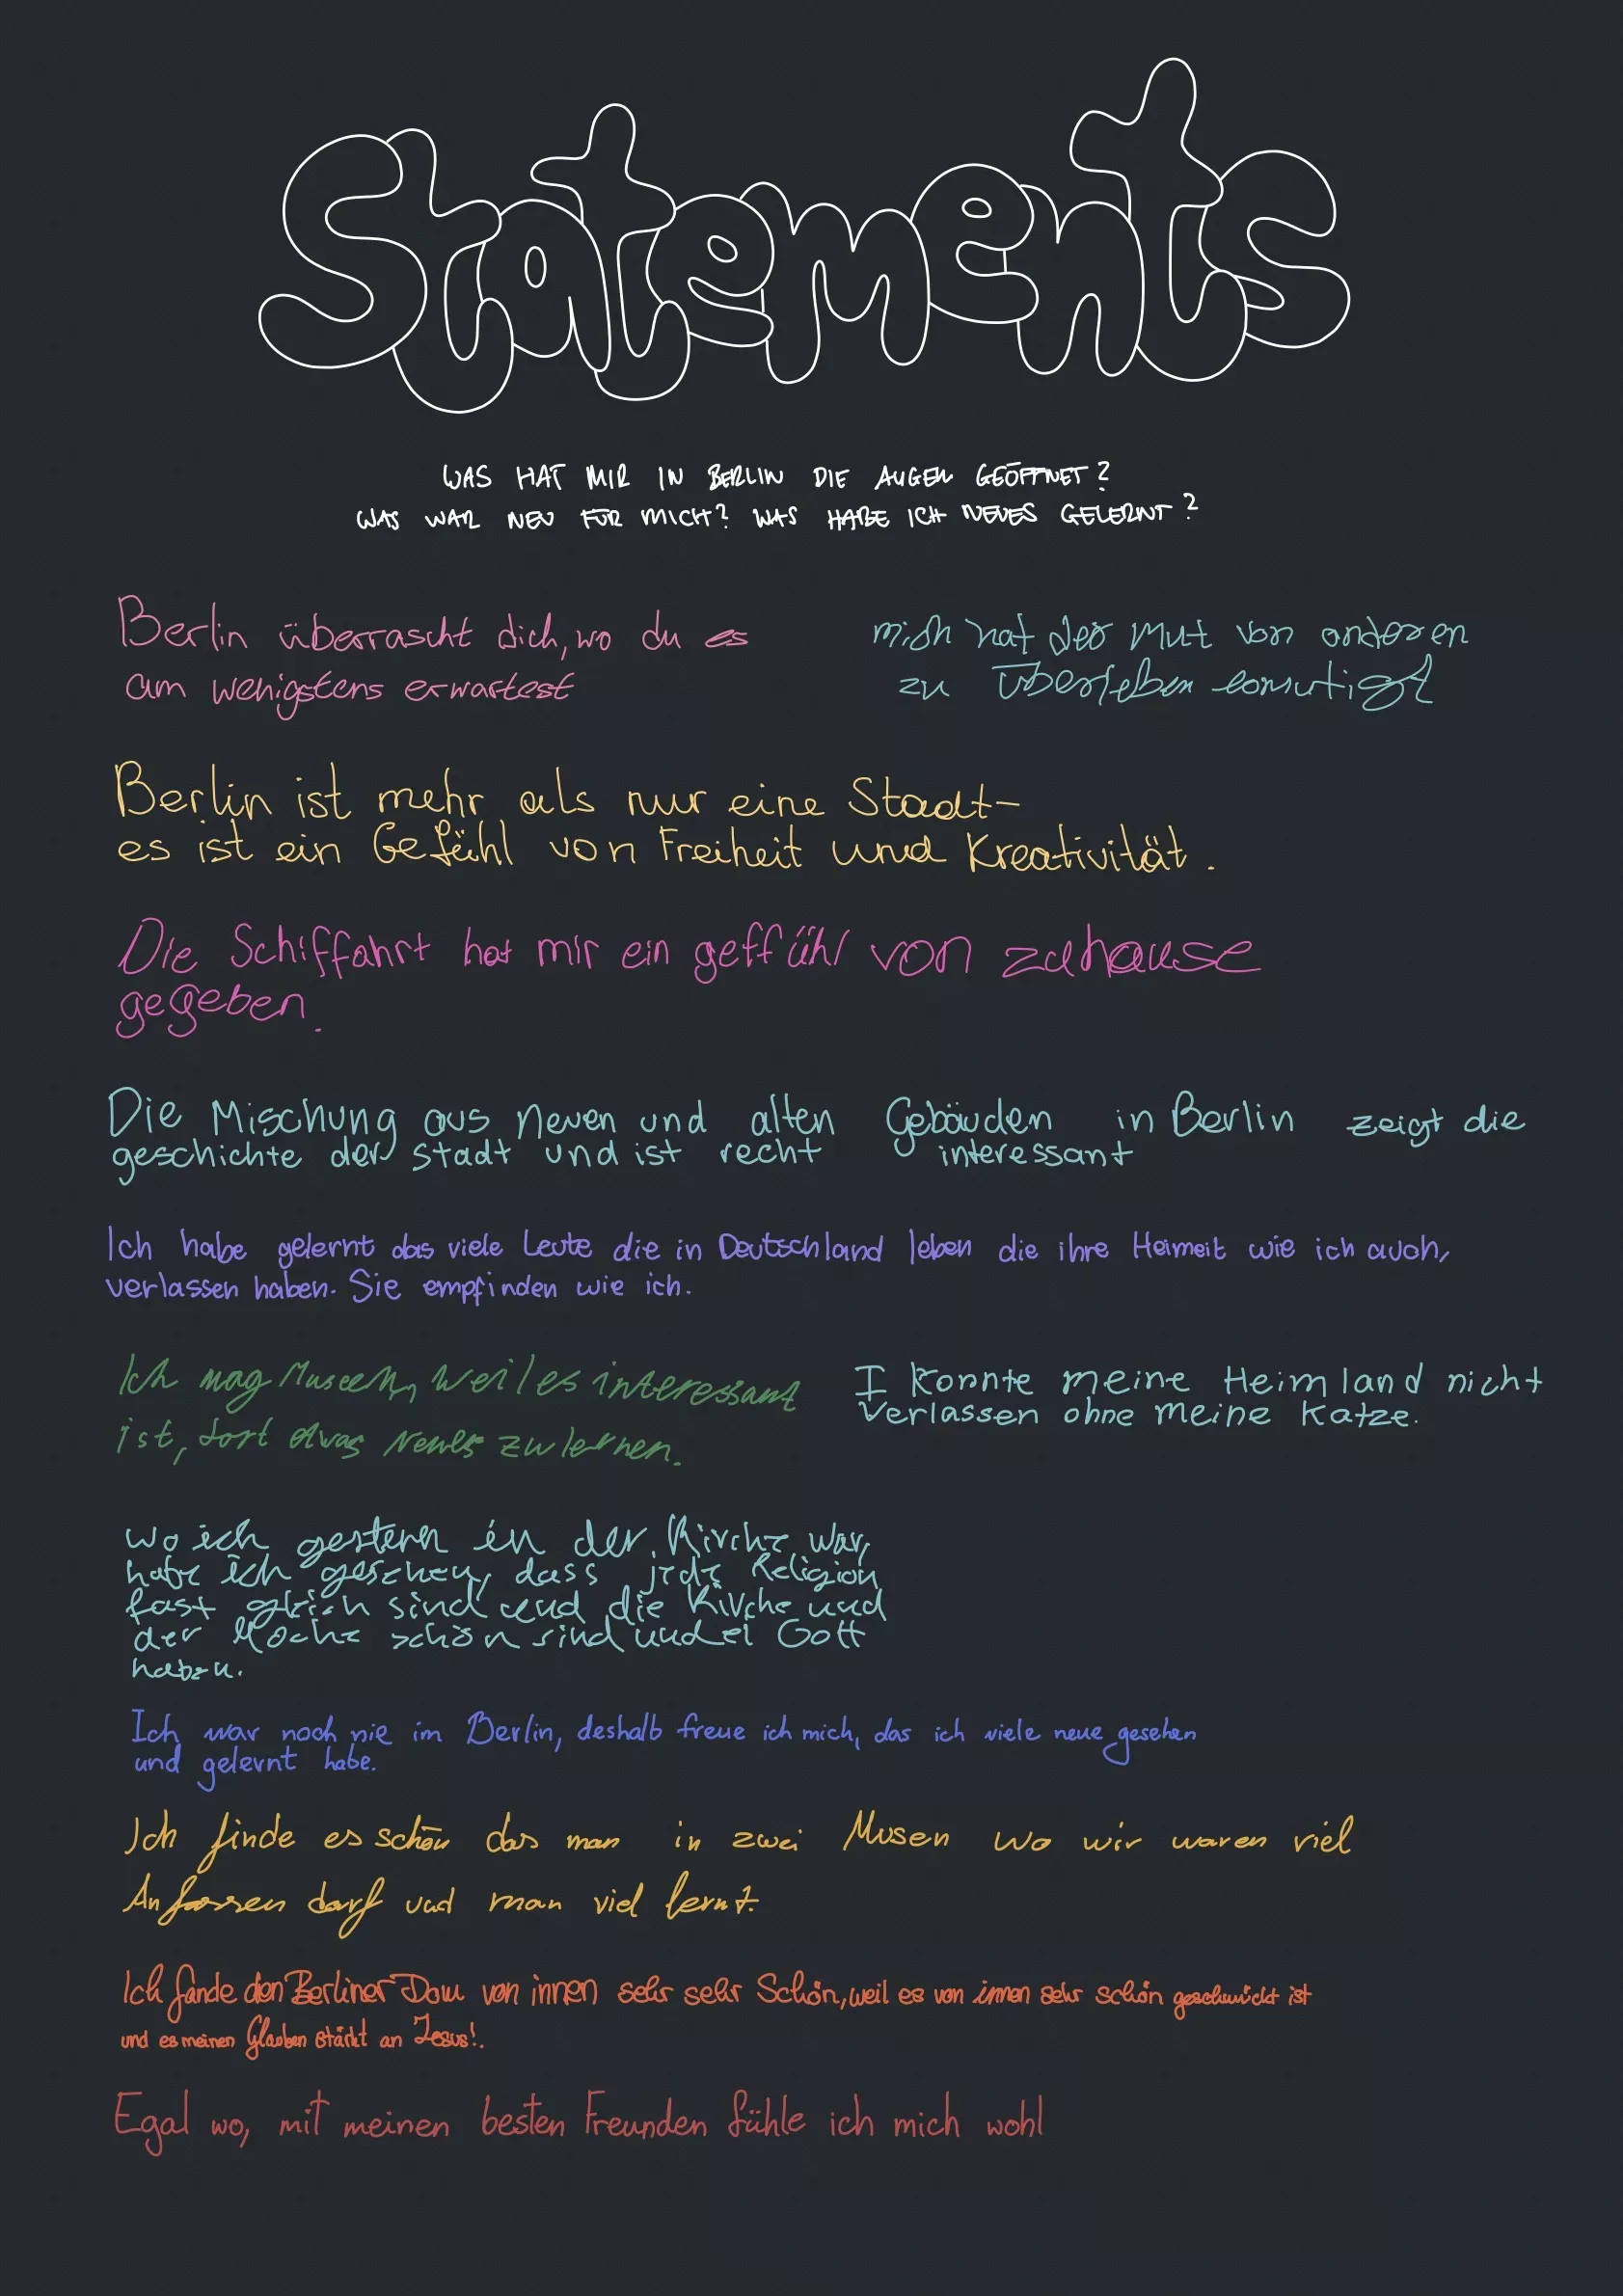 Statements
WAS HAT MIR IN BERLIN DIE AUGEN GEÖFFNET?
WAS WAR NEU FÜR MICH? WAS HABE ICH NEUES GELERNT?
Berlin überrascht dich, wo du es
am wenigstens erwartest
mich hat der Mut von anderen
zu Überleben ermutigt
Berlin ist mehr als nur eine Stadt-
es ist ein Gefühl von Freiheit und Kreativität.
Die Schiffahrt hat mir ein geffühl von zuhause
gegeben.
Die Mischung aus neuen und alten Gebäuden in Berlin zeigt die
geschichte der Stadt und ist recht interessant
Ich habe gelernt das viele Leute die in Deutschland leben die ihre Heimeit wie ich auch,
verlassen haben. Sie empfinden wie ich.
Ich mag Museen, weil es interessant
ist, dort etwas Neues zu lernen.
I konnte meine Heimland nicht
verlassen ohne meine Katze.
wo ich gestern in der Kirche war,
habe ich gesehen, dass jede Religion
fast gleich sind und die Kirche und
der schön sind und Gott
haben.
Ich war noch nie im Berlin, deshalb freue ich mich, das ich viele neue gesehen
und gelernt habe.
Ich finde es schön das man in zwei Musen wo wir waren viel
Anfassen darf und man viel lernt.
Ich fande den Berliner Dom von innen sehr sehr Schön, weil es von innen sehr schön geschmückt ist
und es meinen Glauben stärkt an Jesus!.
Egal wo, mit meinen besten Freunden fühle ich mich wohl